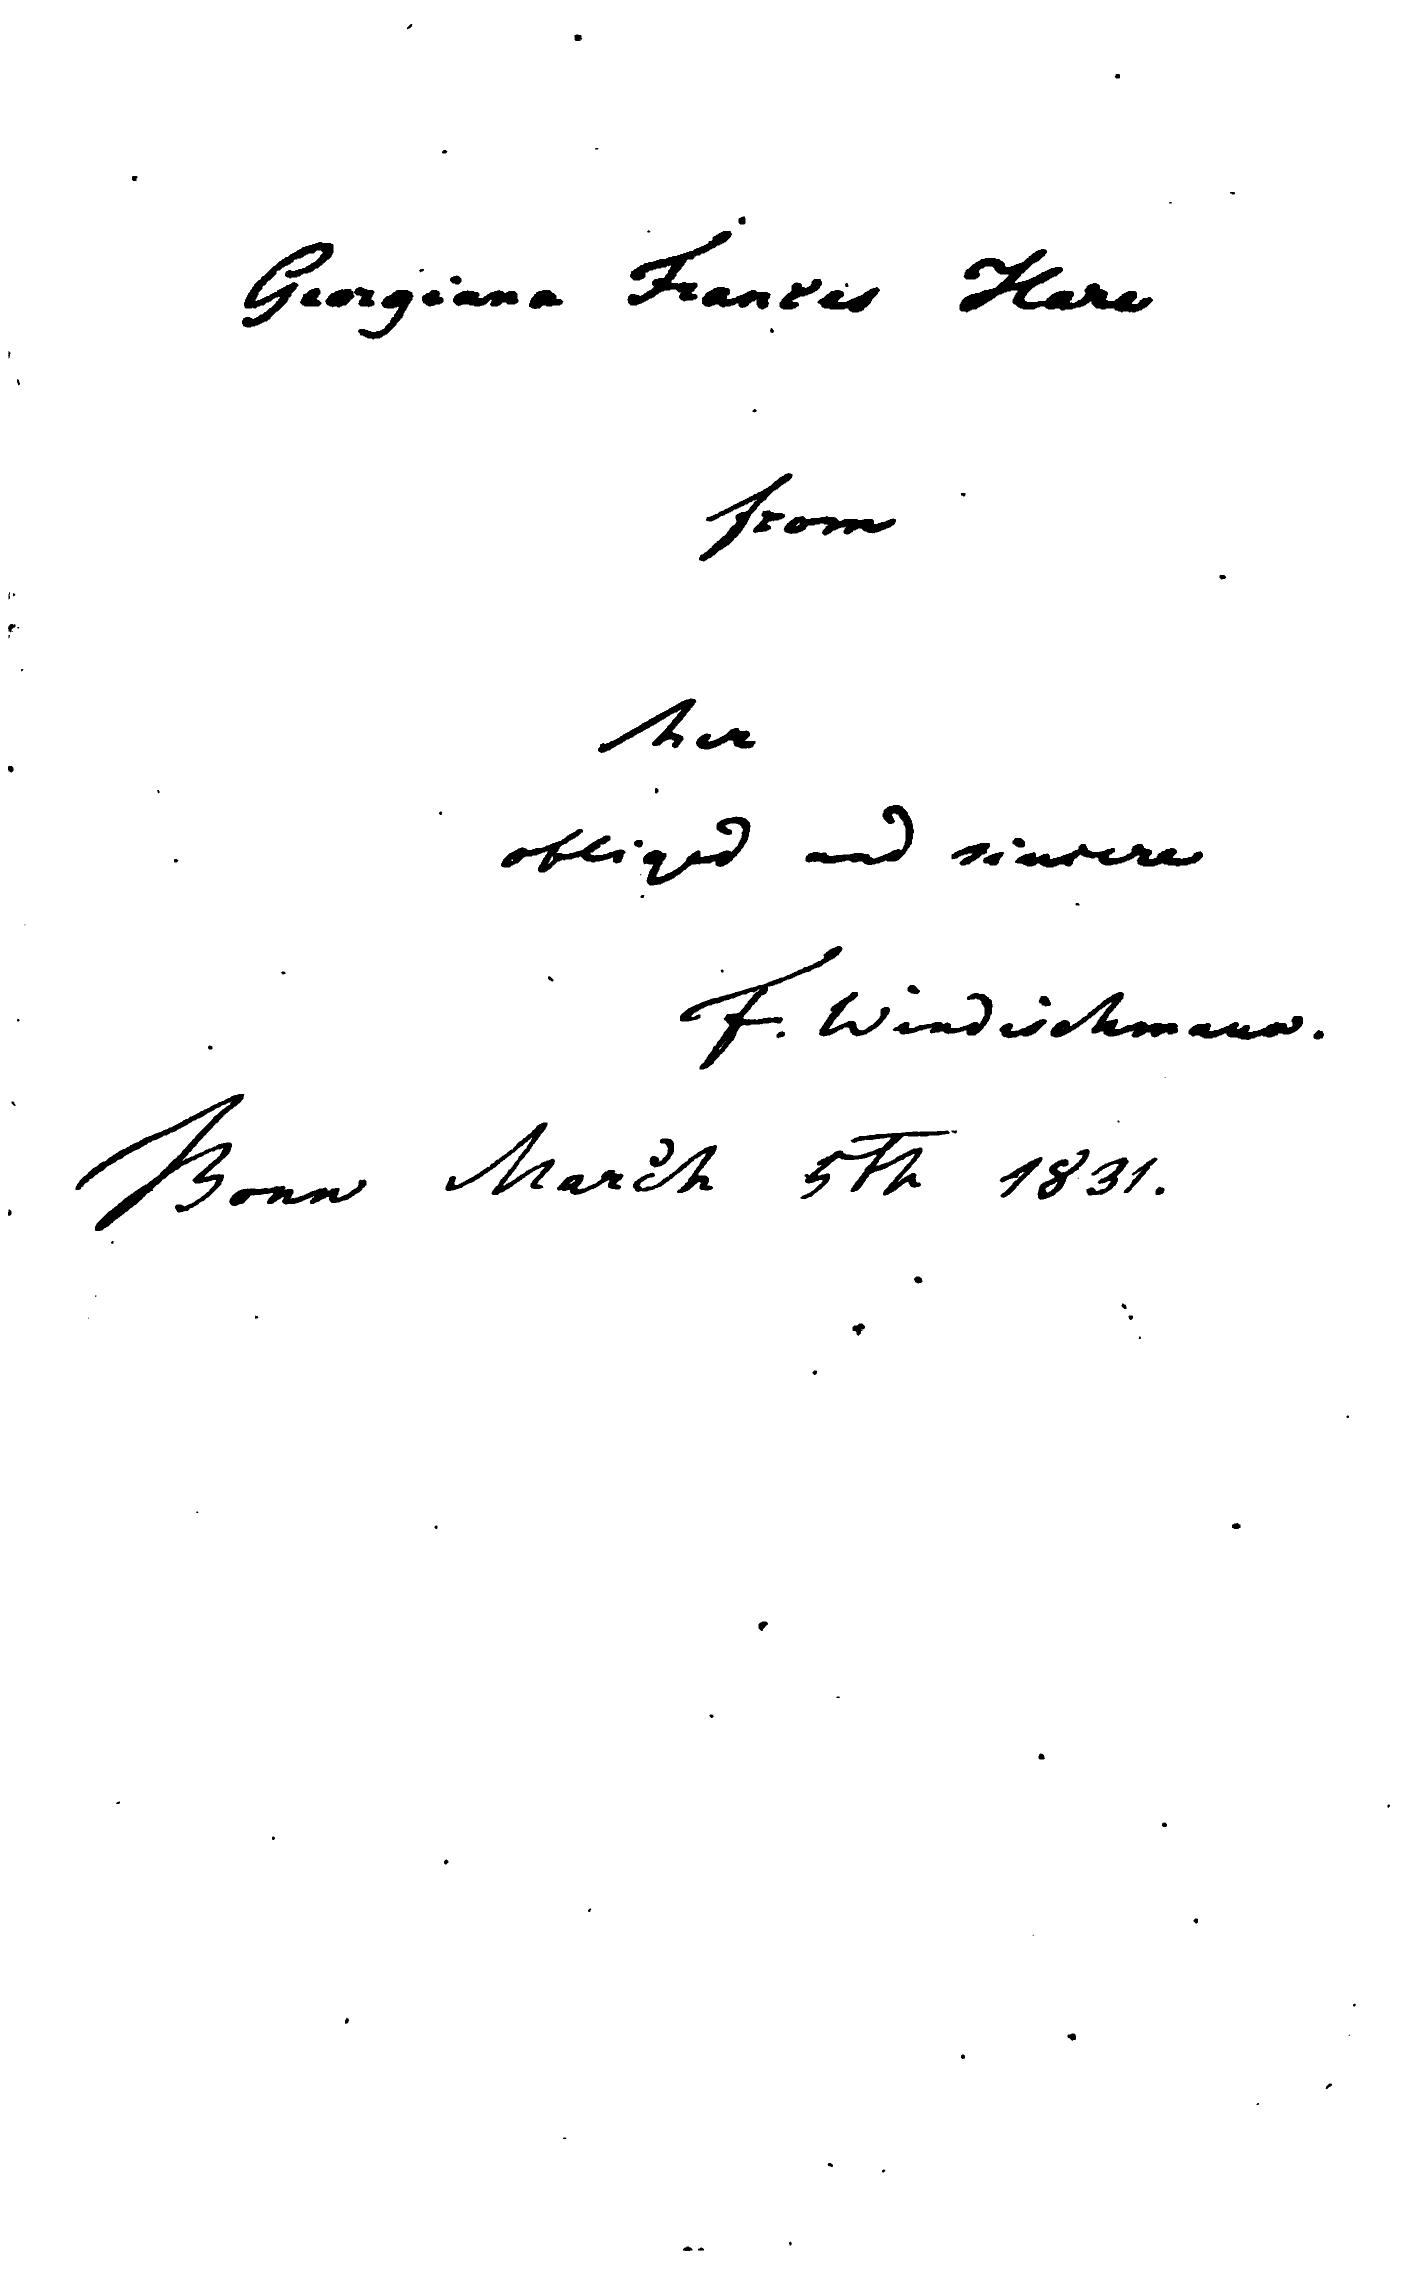 Georgiana Francis Hare
from
her
obliged and sincere
F. Windischmann.
Bonn March 5th 1831.